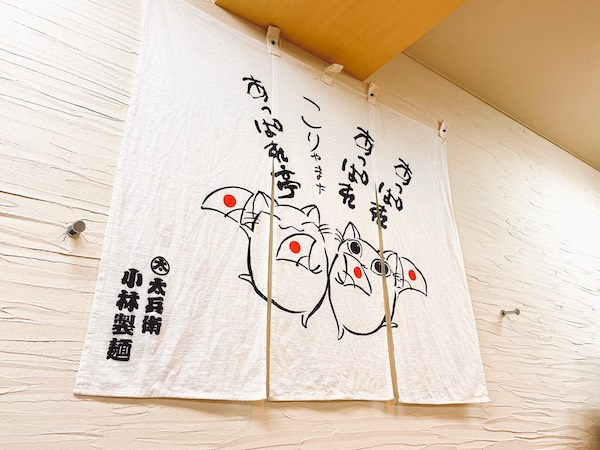 あっぱれ
あっぱれ
こりゃまた
あっぱれ亭
木 太兵衛
小林製麺